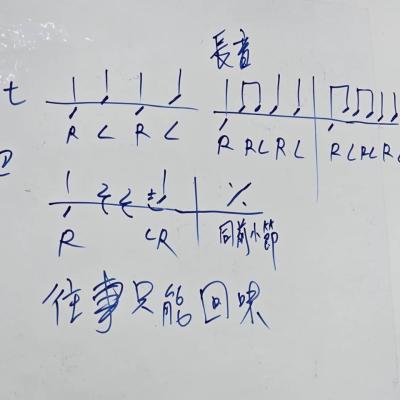 長音
t
R L R L R R L R L R L R L R L
R L R 同前小節
往事只能回味